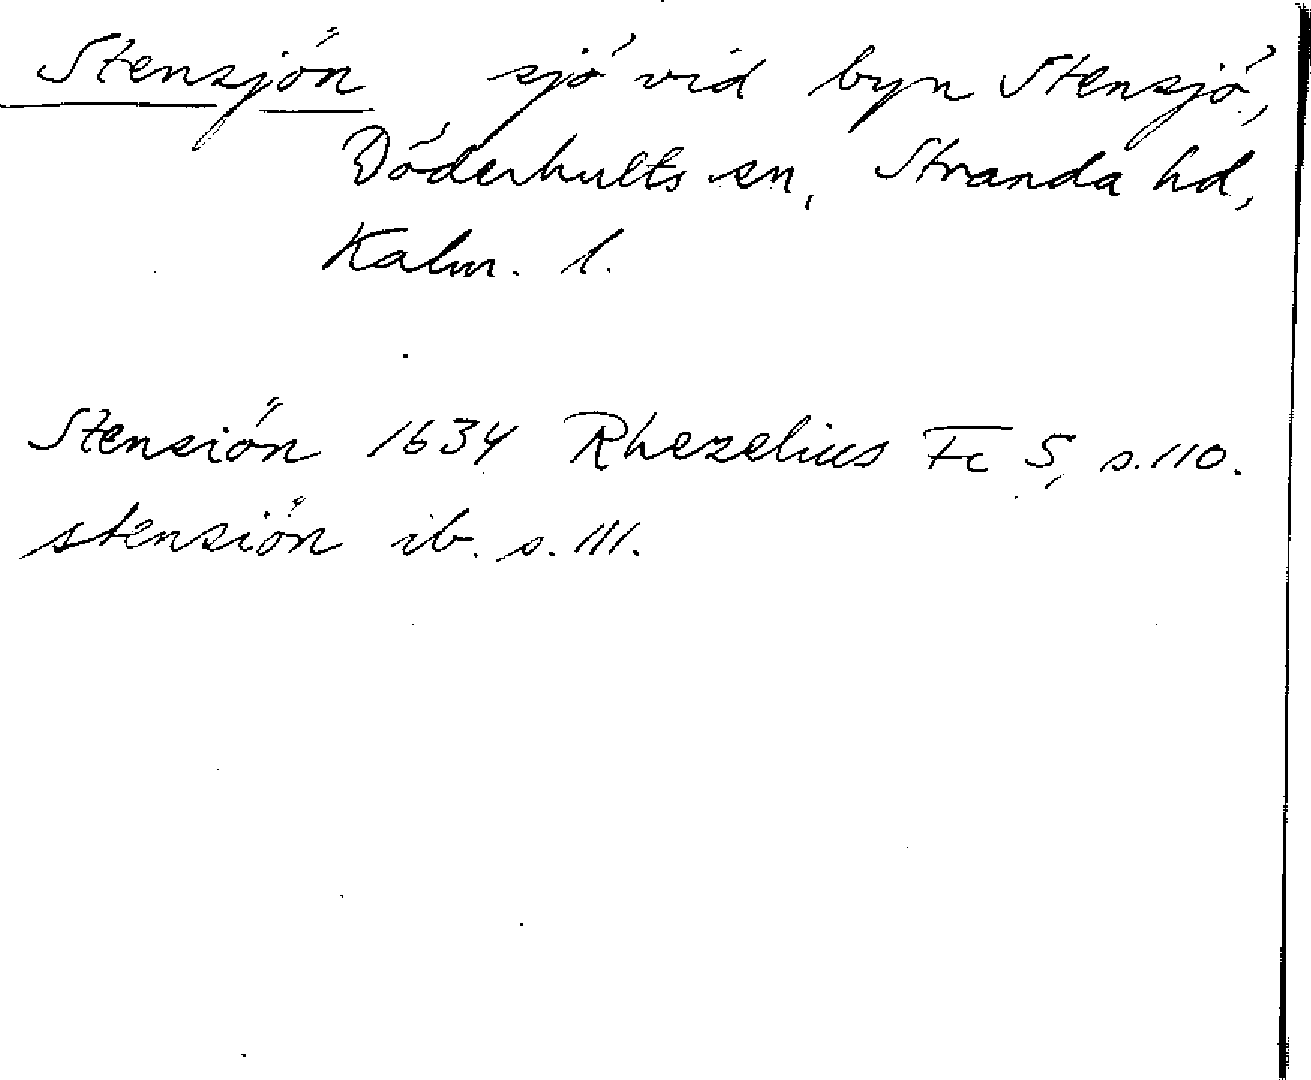 Stensjön sjö vid byn Stensjö,
Döderhults sn, Stranda hd,
Kalm. l.
Stensiön 1634 Rhezelius Fc 5, s. 110.
stensiön ib. s. 111.